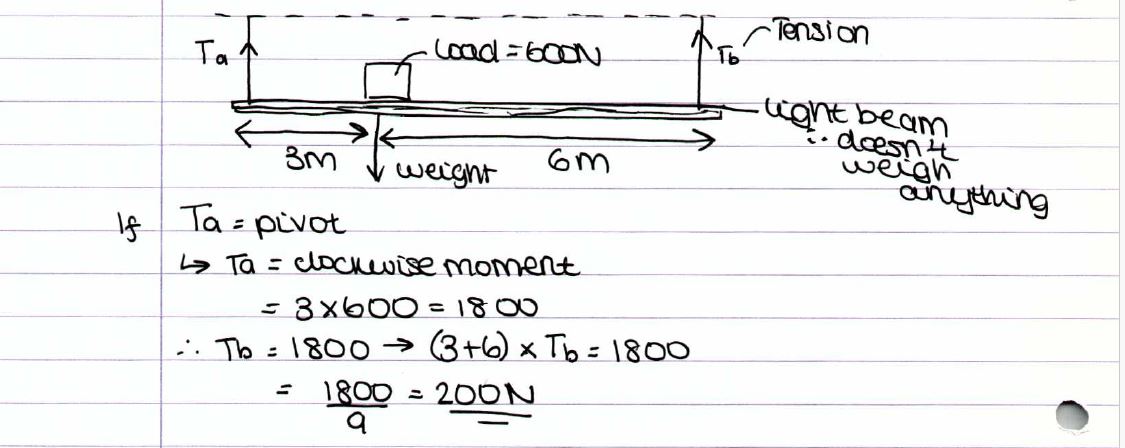 Tension
Ta
Load = 600N
Tb
Light beam
∴ doesn't
weigh
anything
3m
weight
6m
If Ta = pivot
↳ Ta = clockwise moment
= 3 × 600 = 1800
∴ Tb = 1800 → (3+6) × Tb = 1800
= 1800/9 = 200N